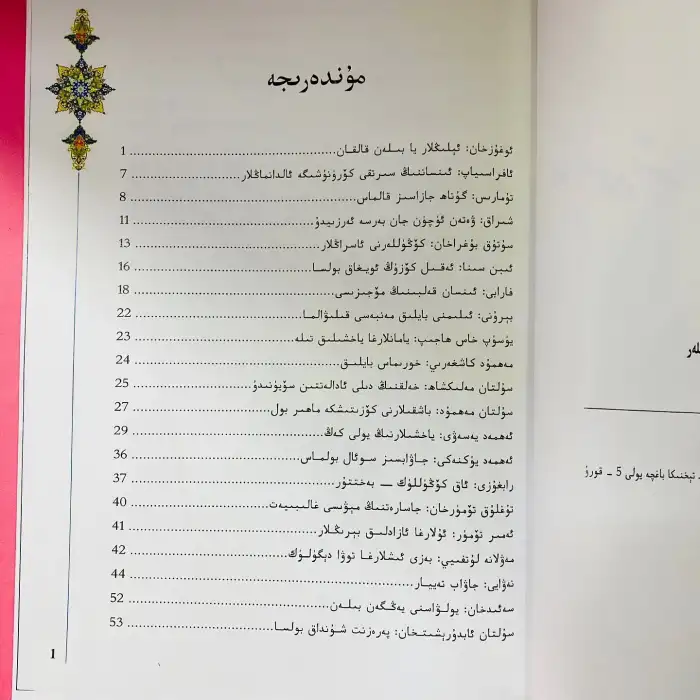 مۇندەرىجە
ئوغۇزخان: ئېلىڭلار يا بىلەن قالقان.......... 1
ئافراسىياپ: ئىنساننىڭ سىرتقى كۆرۈنۈشىگە ئالدانماڭلار.......... 7
تۇمارىس: گۇناھ جازاسىز قالماس.......... 8
شىراق: ۋەتەن ئۈچۈن جان بەرسە ئەرزىيدۇ.......... 11
سۇتۇق بۇغراخان: كۆڭۈللەرنى ئاسراڭلار.......... 13
ئىبن سىنا: ئەقىل كۆزۈڭ ئويغاق بولسا.......... 16
فارابى: ئىنسان قەلبىنىڭ مۆجىزىسى.......... 18
بېرۇنى: ئىلىمنى بايلىق مەنبەسى قىلىۋالما.......... 22
يۈسۈپ خاس ھاجىپ: يامانلارغا ياخشىلىق تىلە.......... 23
مەھمۇد كاشغەرىي: خورىماس بايلىق.......... 24
سۇلتان مەلىكشاھ: خەلقنىڭ دىلى ئادالەتتىن سۆيۈندۇ.......... 25
سۇلتان مەھمۇد: باشقىلارنى كۆزىتىشكە ماھىر بول.......... 27
ئەھمەد يەسەۋى: ياخشىلارنىڭ يولى كەڭ.......... 29
ئەھمەد يۈكنەكى: جاۋابسىز سوئال بولماس.......... 36
رابغۇزى: ئاق كۆڭۈللۈك — بەختتۇر.......... 37
تۇغلۇق تۆمۈرخان: جاسارەتنىڭ مېۋىسى غالىبىيەت.......... 40
ئەمىر تۆمۈر: ئۇلارغا ئازادلىق بېرىڭلار.......... 41
مەۋلانە لۇتفىيى: بەزى ئىشلارغا توۋا دېگۈلۈك.......... 42
نەۋايى: جاۋاب تەييار.......... 44
سەئىدخان: يولۋاسنى يەڭگەن بىلەن.......... 52
سۇلتان ئابدۇرېشىتخان: پەرەزنت شۇنداق بولسا.......... 53
1
لەر
تېخنىكا باغچە يولى 5 - قورۇ